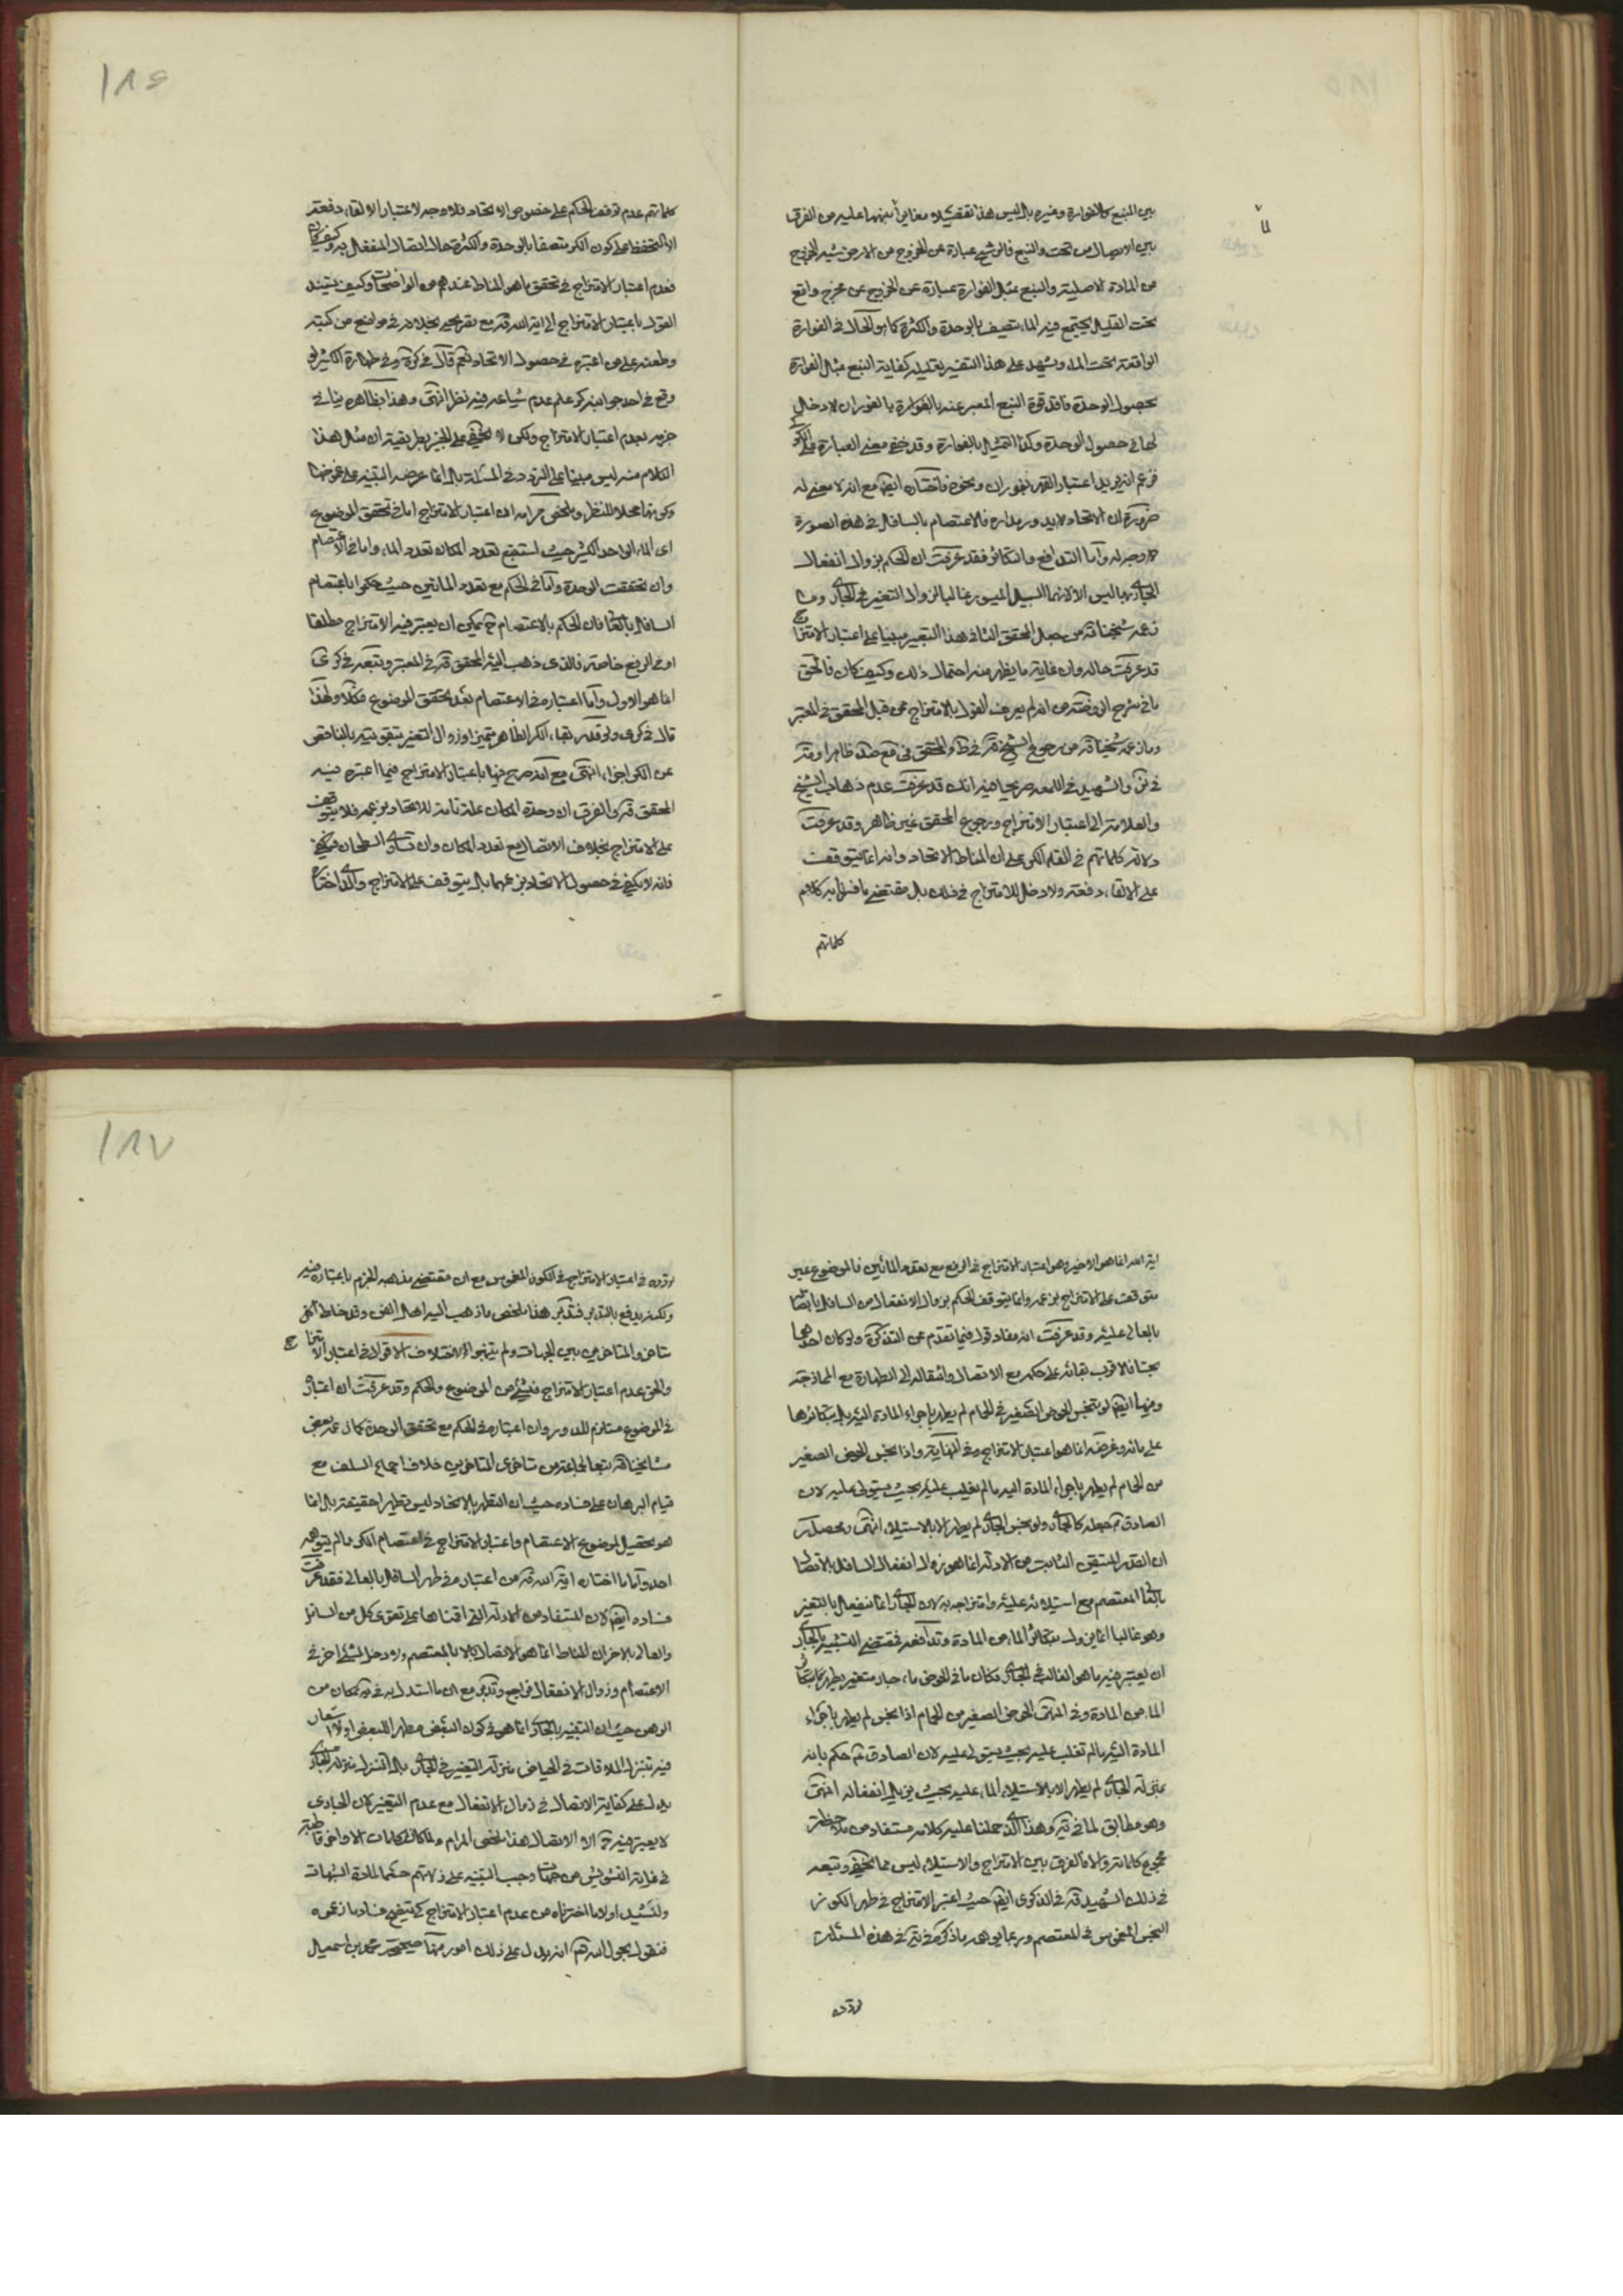 ١٨٦
بين المنبع كالفوارة وغيره بل ليس هذا تفصيلا مغايرا بينها عليه من الفرق
بين الاتصال من تحت والنبع فالترشح عبارة عن الخروج من الارض شبه الخروج
من المادة الاصلية والنبع مثل الفوارة عبارة عن الخروج عن مخرج واقع
تحت القليل يجتمع فيه الماء يتصف بالوحدة والكثرة كما هو الحال في الفوارة
الواقعة تحت الماء ويشهد على هذا التفسير تعليل كفاية النبع مثل الفوارة
بحصول الوحدة فاقد قوة النبع المعبر عنه بالفوارة بالفوران لا دخل
لها في حصول الوحدة وكذا التمثيل بالفوارة وقد خفي معنى العبارة على
فزعم انه يريد اعتبار القهر بفوران ونحوه فاختاره ايضا مع انه لا معنى له
ضرورة ان الاتحاد لابد وربداره فالاعتصام بالسافل في هذه الصورة
لا وجه له واما التدافع والتكاثر فقد عرفت ان الحكم بزوال انفعال
الجاري بها ليس الا لانها السبيل الميسور غالبا لزوال التغير في الجاري وما
زعمه شيخنا قده من جعل المحقق الثاني هذا التعبير مبنيا على اعتبار الامتزاج
قد عرفت حاله وان غاية ما يظهر منه احتمال ذلك وكيف كان فالحق
ما في شرح الروضة من انه لم يعرف القول بالامتزاج ممن قبل المحقق في المعتبر
وما زعمه شيخنا قده من رجوع الشيخ قده في ط والمحقق في مع ضد ظاهرا وقد
في كرى والشهيد في اللمعة صريحا فيه انك قد عرفت عدم ذهاب الشيخ
والعلامة الى اعتبار الامتزاج ورجوع المحقق غير ظاهر وقد عرفت
دلالة كلماتهم في القاء الكر على ان المناط الاتحاد وانه انما يتوقف
على الالقاء دفعة ولا دخل للامتزاج في ذلك بل مقتضى ما فسرنا به كلام
كلماتهم
كلماتهم عدم توقف الحكم على خصوص الاتحاد فلا وجه لاعتبار الالقاء دفعة
الا التحفظ على كون الكر متصفا بالوحدة والكثرة حال اتصال المنفعل به وكيف كان
فعدم اعتبار الامتزاج في تحقق ما هو المناط عندهم من الواضحات وكيف يستند
القول باعتبار الامتزاج الى اية الله قده مع تصريحه بخلافه في مواضع من كتبه
وطعنه على من اعتبره في حصول الاتحاد نعم قال في كرة وفي طهارة الكثير لو
وقع في احد جوانبه كر علم عدم شياعه فيه نظر انتهى وهذا بظاهره ينافي
جزمه بعدم اعتبار الامتزاج ولكن لا يخفى على الخبير بطريقته ان مثل هذا
الكلام منه ليس مبنيا على التردد في المسئلة بل انما غرضه التنبيه على غموضها
وكونها محلا للنظر وملخص مرامه ان اعتبار الامتزاج اما في تحقق الموضوع
اى الماء الواحد الكثير حيث استتبع تعدد المكان تعدد الماء واما في الاعتصام
وان تحققت الوحدة واما في الحكم مع تعدد المائين حيث حكموا باعتصام
السافل بالعالي فان الحكم بالاعتصام ح يمكن ان يعتبر فيه الامتزاج مطلقا
او في الرفع خاصة فالذى ذهب اليه المحقق قده في المعتبر وتبعه في كرى
انما هو الاول واما اعتباره في الاعتصام بعد تحقق الموضوع فكلا ولهذا
قال في كرى ولو قدر بقاء الكر الطاهر متميزا وزوال التغير بتقويته بالناقص
عن الكر اجزاء انتهى مع انه صرح فيها باعتبار الامتزاج فيما اعتبره فيه
المحقق قده والفرق ان وحدة المكان علة تامة للاتحاد بزعمه فلا يتوقف
على الامتزاج بخلاف الاتصال مع تعدد المكان وان تساوى السطحان
فانه لا يكفي في حصول الاتحاد بزعمهما بل يتوقف على الامتزاج والذي اختاره
١٨٧
اية الله انما هو الاخير وهو اعتبار الامتزاج في الرفع مع تعدد المائين فالموضوع غير
متوقف على الامتزاج بزعمه وانما يتوقف الحكم بزوال الانفعال من السافل باتصاله
بالعالي عليه وقد عرفت انه مفاد قوله فيما تقدم عن التذكرة ولو كان احدهما
نجسا فالاقرب بقائه على حكمه مع الاتصال وانتقاله الى الطهارة مع الممازجة
وفيها ايضا لو تنجس الحوض الصغير في الحمام لم يطهر باجراء المادة اليه بل بتكاثرها
على مائه وغرضه انما هو اعتبار الامتزاج وفي النهاية واذا نجس الحوض الصغير
من الحمام لم يطهر باجراء المادة اليه ما لم يغلب عليه بحيث يستولى عليه لان
الصادق ع جعله كالجاري ولو نجس الجاري لم يطهر الا بالاستيلاء انتهى ومحصله
ان القدر المتيقن الثابت من الادلة انما هو زوال انفعال السافل بالاتصال
بالعالي المعتصم مع استيلائه عليه وامتزاجه به لان الجاري انما ينفعل بالتغير
وهو غالبا انما يزول بتكاثر الماء من المادة وتدافعه فمقتضى التشبيه بالجاري
ان يعتبر فيه ما هو الغالب في الجاري فكان ما في الحوض ماء جار متغير يطهر بتكاثر
الماء من المادة وفي المنتهى الحوض الصغير من الحمام اذا نجس لم يطهر باجراء
المادة اليه ما لم تغلب عليه بحيث يستولى عليه لان الصادق ع حكم بانه
بمنزلة الجاري لم يطهر الا باستيلاء الماء عليه بحيث يزيل انفعاله انتهى
وهو مطابق لما في ية وهذا الذي حملنا عليه كلامه مستفاد من ملاحظة
مجموع كلماته والا فالفرق بين الامتزاج والاستيلاء ليس مما يخفى وتبعه
في ذلك الشهيد قده في الذكرى ايضا حيث اعتبر الامتزاج في طهر الكوز
النجس المغموس في المعتصم وربما يوهم ما ذكره في كرة في هذه المسئلة
تردده
تردده في اعتبار الامتزاج في الكوز المغموس مع ان مقتضى مذهبه الجزم باعتباره فيه
ولكنه يدفع بالتدبر فتدبر هذا ملخص ما ذهب اليه اهل الفن وقد خلط اكثر
متاخرى المتاخرين بين الجهات ولم يتنبهوا لاختلاف الاقوال في اعتبار الامتزاج
والحق عدم اعتبار الامتزاج في شئ من الموضوع والحكم وقد عرفت ان اعتباره
في الموضوع مستلزم للدور وان اعتباره في الحكم مع تحقق الوحدة كما زعمه بعض
مشايخنا قده تبعا لجماعة من متاخرى المتاخرين خلاف اجماع السلف مع
قيام البرهان على فساده حيث ان التطهر بالاتحاد ليس تطهيرا حقيقة بل انما
هو تحصيل لموضوع الاعتصام واعتبار الامتزاج في اعتصام الكر مما لم يتوهمه
احد واما ما اختاره اية الله قده من اعتباره في طهر السافل بالعالي فقد عرفت
فساده ايضا لان المستفاد من الادلة التي اقمناها على تقوى كل من السافل
والعالي بالاخر ان المناط انما هو الاتصال بالمعتصم ولا دخل لشئ اخر في
الاعتصام وزوال الانفعال فراجع وتدبر مع ان ما استدل به في ية بمكان من
الوهن حيث ان التشبيه بالجاري انما هو في كون البعض مطهرا للبعض ولا اشعار
فيه بتنزيل الملاقات في الحياض منزلة التغير في الجاري بل التنزيل منزلة الجاري
يدل على كفاية الاتصال في زوال الانفعال مع عدم التغير لان الجاري
لا يعتبر فيه ح الا الاتصال هذا ملخص المرام ولما كان كلمات الاواخر قاطبة
في غاية التشويش من جهات وجب التنبيه على زلاتهم حسما لمادة الشبهات
ولنشيد اولا ما اخترناه من عدم اعتبار الامتزاج كي يتضح فساد ما زعموه
فنقول بحول الله تعالى انه يدل على ذلك امور منها صحيحة محمد بن اسمعيل